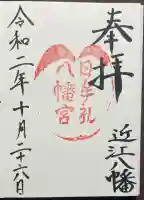 奉拝
近江八幡
日牟礼
八幡宮
令和二年十月二十六日